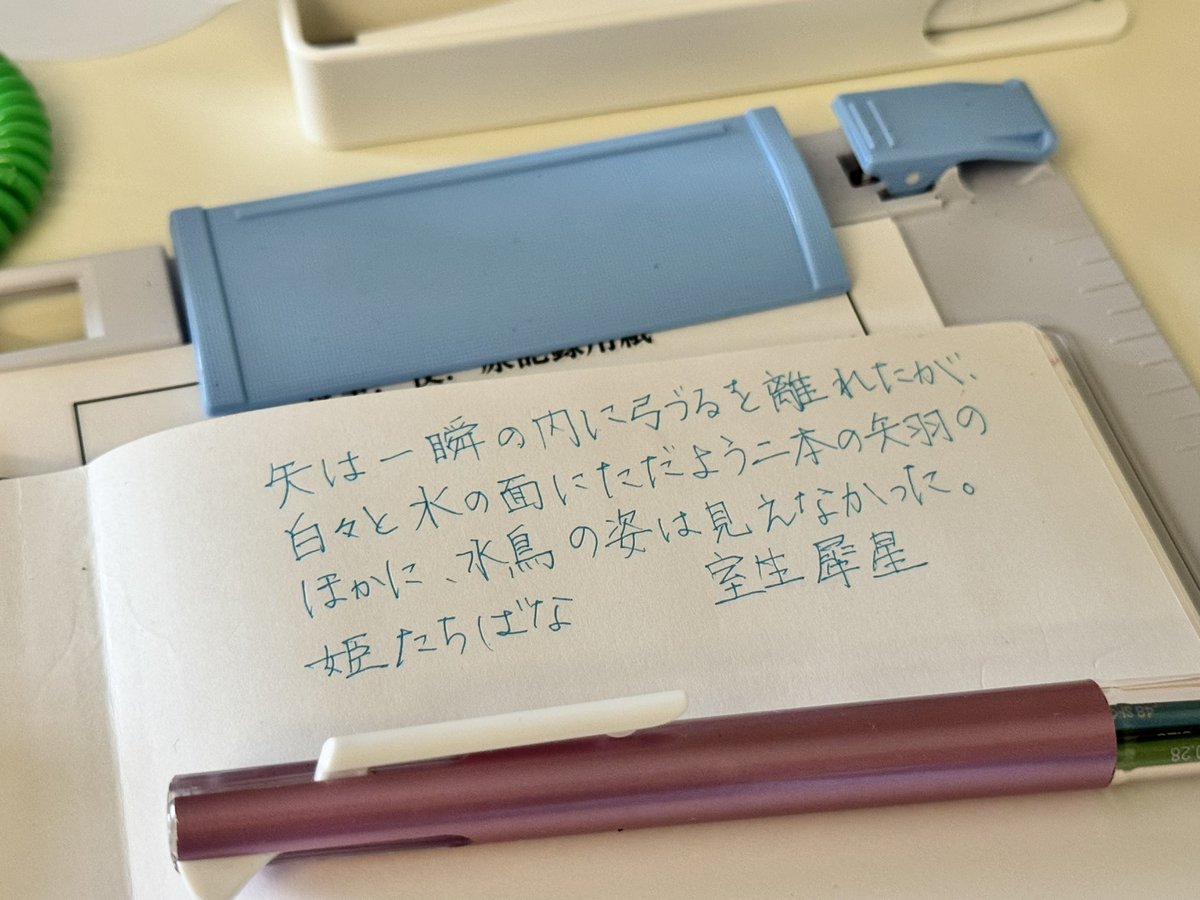 原記録用紙
矢は一瞬の内に弓づるを離れたが、
白々と水の面にただよう二本の矢羽の
ほかに、水鳥の姿は見えなかった。
室生犀星
姫たちばな
28